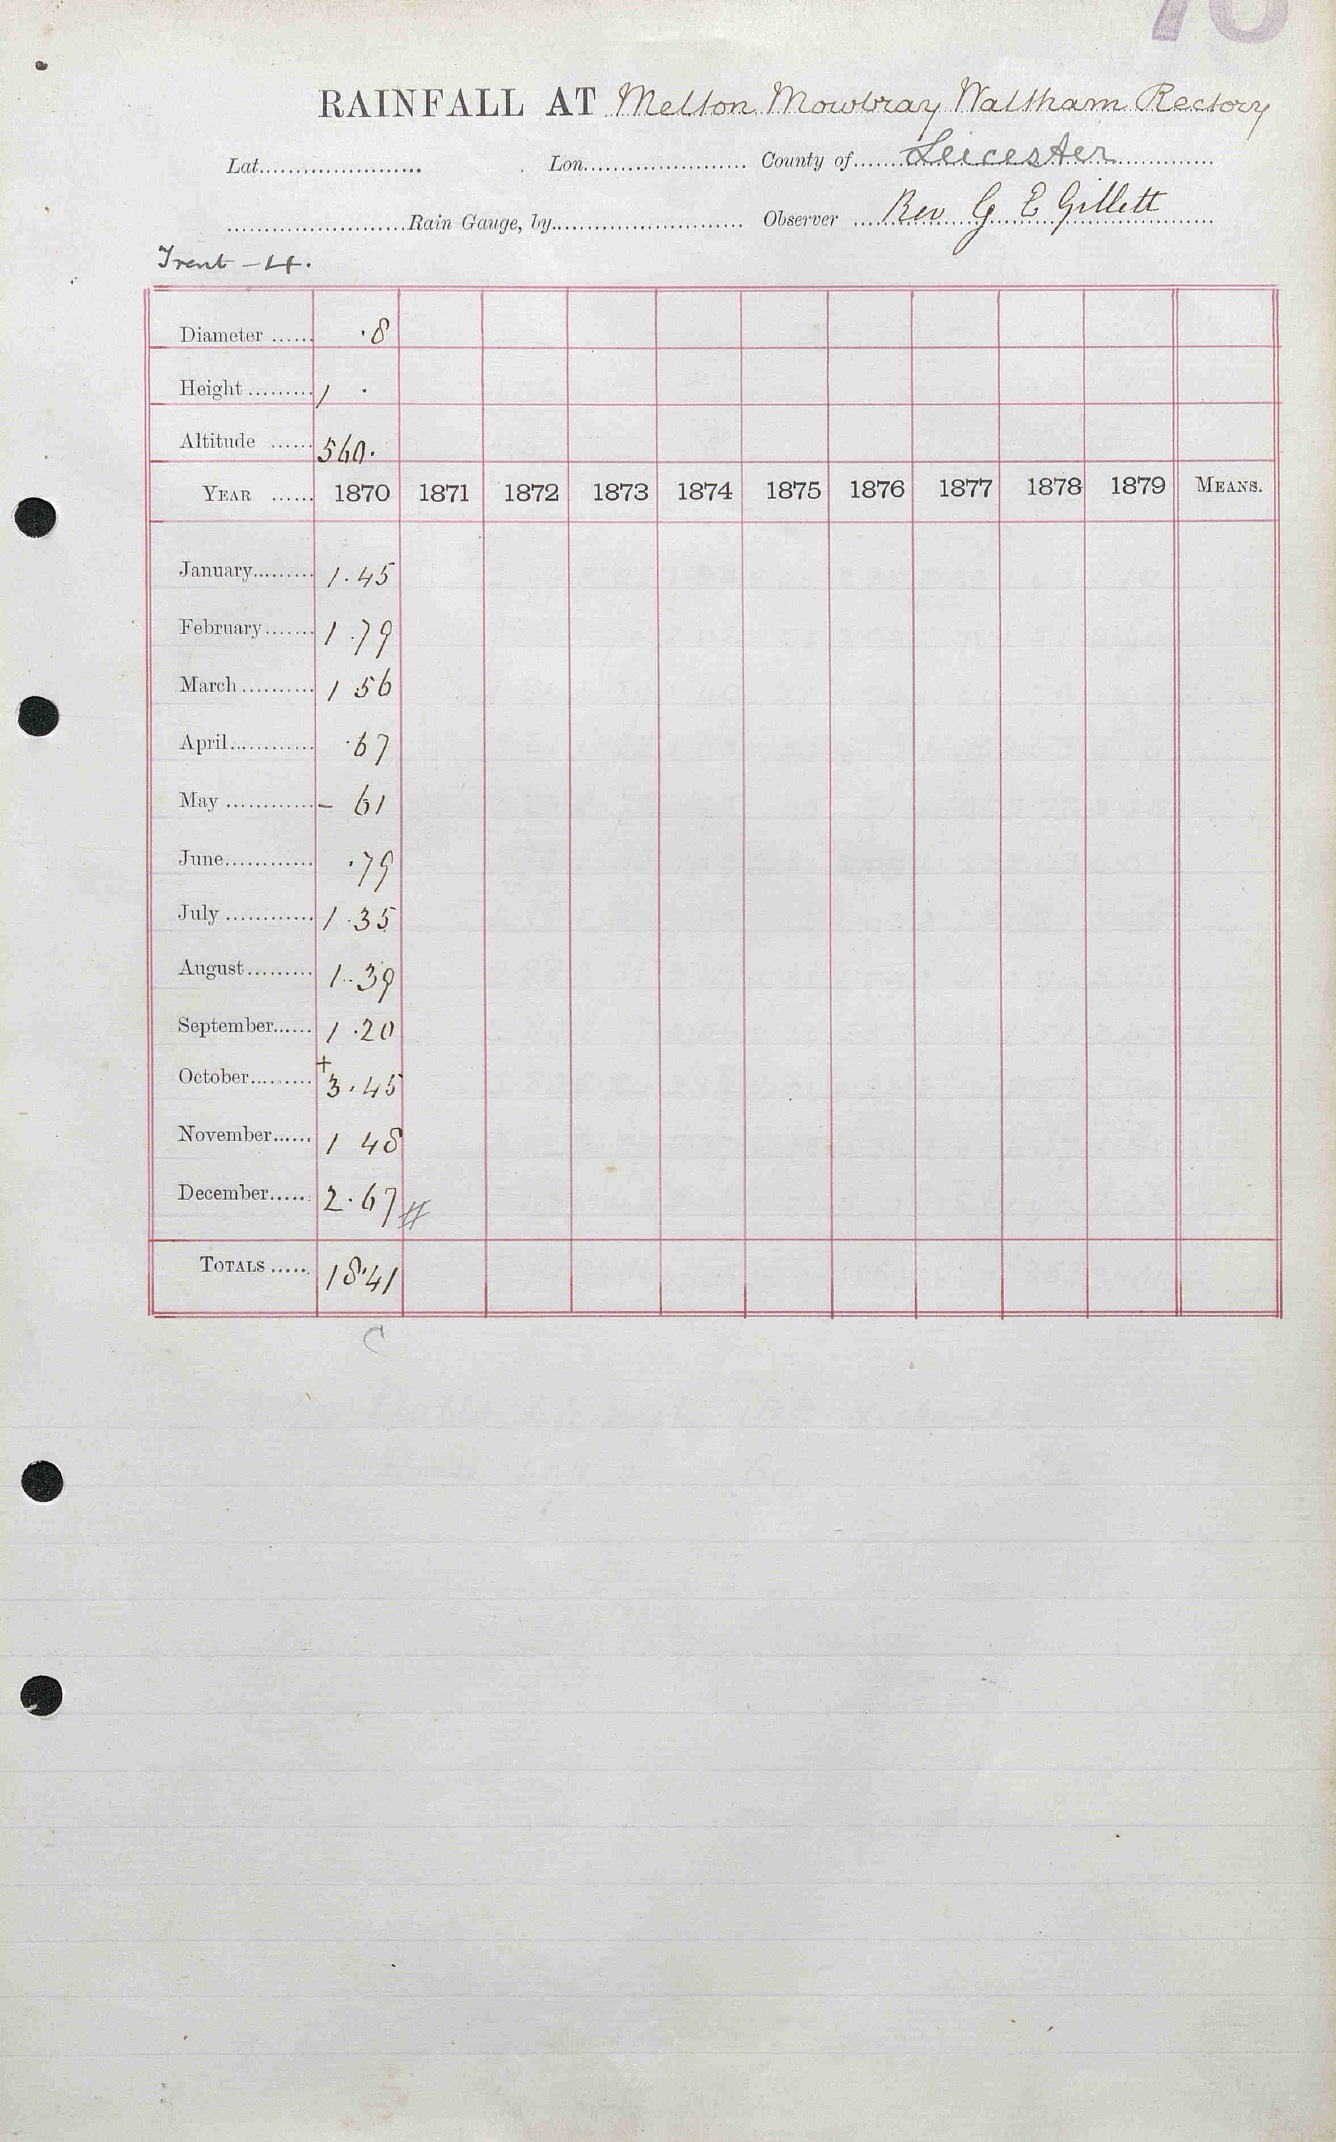 70
RAINFALL AT Melton Mowbray Waltham Rectory
Lat. Lon. County of Leicester
Rain Gauge, by Observer Rev G E Gillett
Trent - 4.
Diameter ...... .8
Height ......... 1 .
Altitude ...... 560.
YEAR ...... 1870 1871 1872 1873 1874 1875 1876 1877 1878 1879 MEANS.
January......... 1.45
February....... 1.79
March .......... 1 56
April............ .67
May ............ - 61
June............ .79
July ............ 1.35
August......... 1.39
September...... 1.20
October......... +3.45
November...... 1 48
December..... 2.67 #
TOTALS ..... 18.41
C